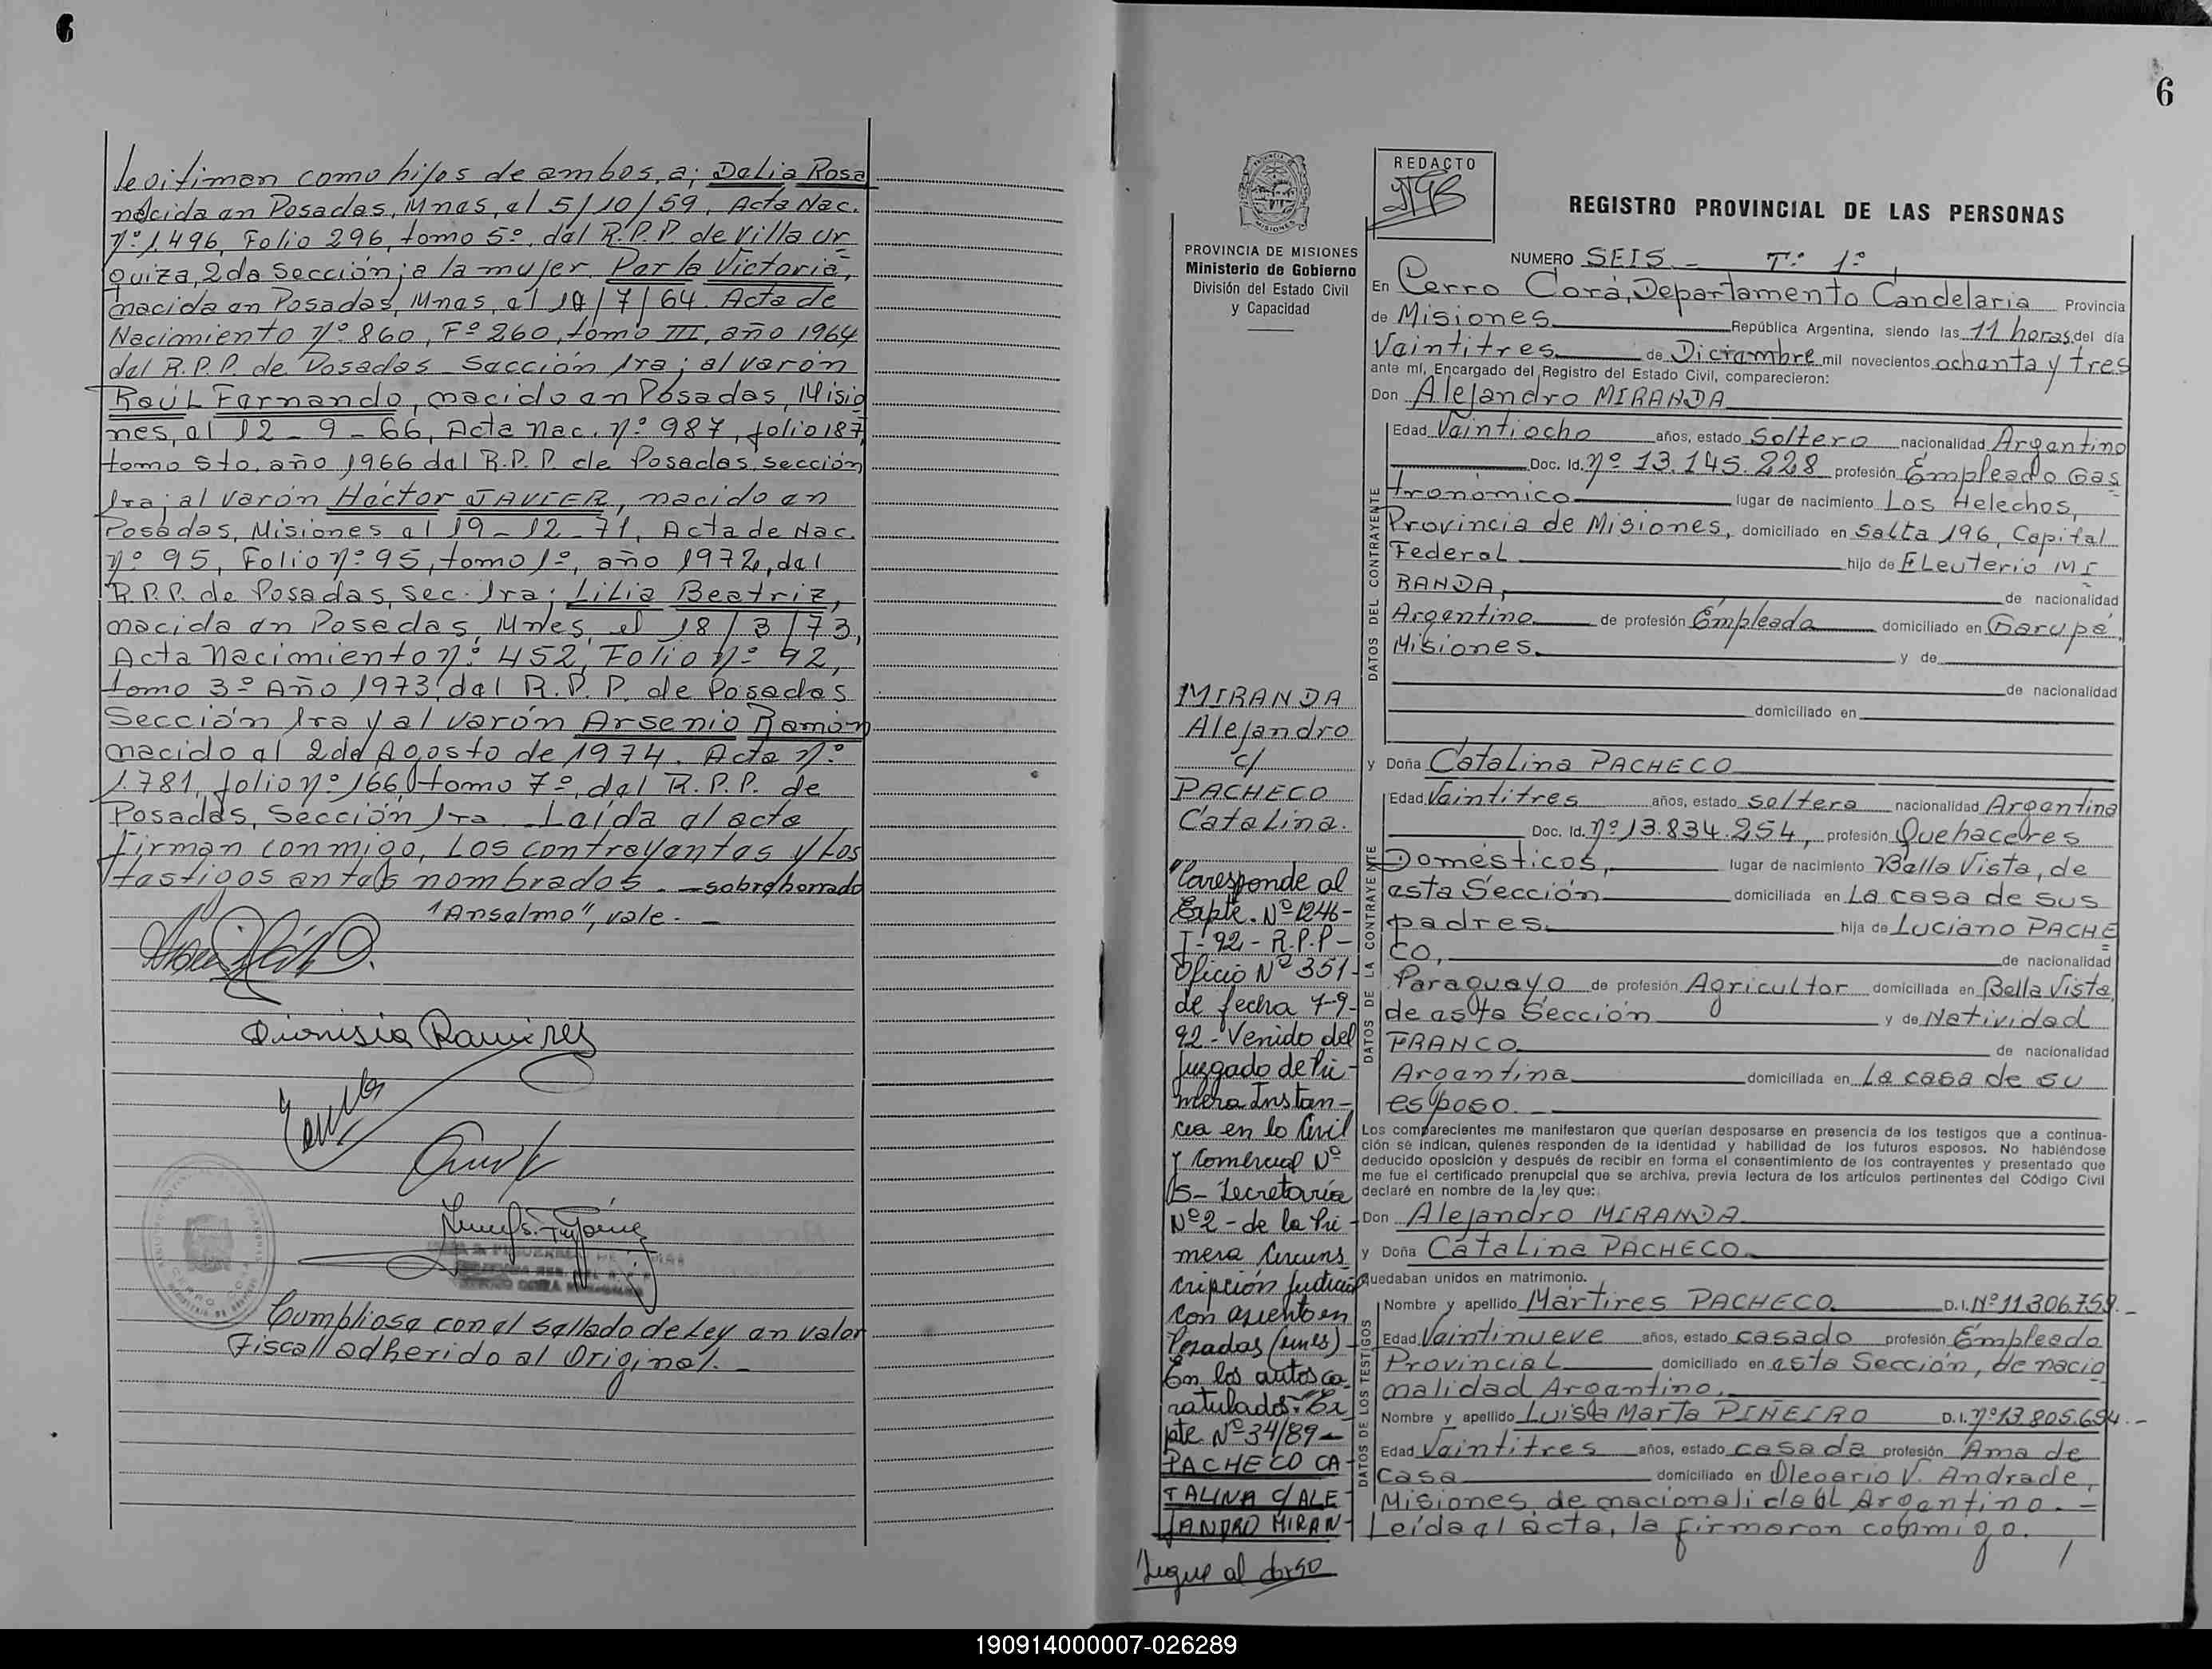 6
legitiman como hijos de ambos, a; Delia Rosa
nacida en Posadas, Mnes, el 5/10/59, Acta Nac.
Nº 1496, Folio 296, tomo 5º, del R.P.P. de Villa Ur
quiza, 2da Sección; a la mujer Perla Victoria,
nacida en Posadas, Mnes, el /7/64. Acta de
Nacimiento Nº 860, Fº 260, tomo III, año 1964
del R.P.P. de Posadas Sección 1ra; al varón
Raúl Fernando, nacido en Posadas, Misio
nes, el 12-9-66, Acta Nac. Nº 987, folio 187,
tomo 5to. año 1966 del R.P.P. de Posadas, sección
1ra; al varón Héctor JAVIER, nacido en
Posadas, Misiones el 19-12-71, Acta de Nac.
Nº 95, Folio Nº 95, tomo 1º, año 1972, del
R.P.P. de Posadas, Sec. 1ra; Lilia Beatriz,
nacida en Posadas, Mnes, el 18/3/73,
Acta Nacimiento Nº 452, Folio Nº 92,
tomo 3º Año 1973, del R.P.P. de Posadas
Sección 1ra y al varón Arsenio Ramón
nacido el 2 de Agosto de 1974. Acta Nº
1.781, folio Nº 166, tomo 7º, del R.P.P. de
Posadas, Sección 1ra. Leída el acta
firman conmigo, Los contrayentes y Los
testigos antes nombrados. - sobreborrado
"Anselmo", vale. -
Dionisia Ramires
Cumpliose con el sellado de Ley en valor
Fiscal adherido al Original. -
6
PROVINCIA DE MISIONES
Ministerio de Gobierno
División del Estado Civil
y Capacidad
MIRANDA
Alejandro
c/
PACHECO
Catalina.
"Corresponde al
Expte. Nº 1246-
T-92- R.P.P-
Oficio Nº 351-
de fecha 7-9-
92- Venido del
Juzgado de Pri-
mera Instan-
cia en lo Civil
y Comercial Nº
5- Secretaría
Nº 2 - de la Pri-
mera Circuns
cripción Judicial
con asiento en
Posadas (Mnes) -
En los autos ca-
ratulados: "Ex
pte. Nº 34/89-
PACHECO CA-
TALINA C/ ALE-
JANDRO MIRAN-
Sigue al dorso
REDACTO
REGISTRO PROVINCIAL DE LAS PERSONAS
NUMERO SEIS.- Tº 1º
En Cerro Corá, Departamento Candelaria Provincia
de Misiones República Argentina, siendo las 11 horas del día
Veintitres de Diciembre mil novecientos ochenta y tres
ante mí, Encargado del Registro del Estado Civil, comparecieron:
Don Alejandro MIRANDA
DATOS DEL CONTRAYENTE
Edad Veintiocho años, estado Soltero nacionalidad Argentino
Doc. Id. Nº 13.145.228 profesión Empleado Gas
tronómico lugar de nacimiento Los Helechos,
Provincia de Misiones, domiciliado en Salta 196, Capital
Federal hijo de ELeuterio MI
RANDA, de nacionalidad
Argentino de profesión Empleado domiciliado en Garupá,
Misiones. y de
de nacionalidad
domiciliado en
y Doña Catalina PACHECO
DATOS DE LA CONTRAYENTE
Edad Veintitres años, estado soltera nacionalidad Argentina
Doc. Id. Nº 13.834.254, profesión Quehaceres
Domésticos, lugar de nacimiento Bella Vista, de
esta Sección domiciliada en La casa de sus
padres. hija de Luciano PACHE
CO, de nacionalidad
Paraguayo de profesión Agricultor domiciliada en Bella Vista,
de esta Sección y de Natividad
FRANCO de nacionalidad
Argentina domiciliada en La casa de su
esposo.
Los comparecientes me manifestaron que querían desposarse en presencia de los testigos que a continua-
ción se indican, quienes responden de la identidad y habilidad de los futuros esposos. No habiéndose
deducido oposición y después de recibir en forma el consentimiento de los contrayentes y presentado que
me fue el certificado prenupcial que se archiva, previa lectura de los artículos pertinentes del Código Civil
declaré en nombre de la ley que:
Don Alejandro MIRANDA
y Doña Catalina PACHECO
quedaban unidos en matrimonio.
DATOS DE LOS TESTIGOS
Nombre y apellido Mártires PACHECO D.I. Nº 11.306.759.-
Edad Veintinueve años, estado casado profesión Empleado
Provincial domiciliado en esta Sección, de nacio
nalidad Argentino.
Nombre y apellido Luisa Marta PIÑEIRO D.I. Nº 13.805.654.-
Edad Veintitres años, estado casada profesión Ama de
Casa domiciliado en Olegario V. Andrade,
Misiones, de nacionalidad Argentino. =
Leída el acta, la firmaron conmigo.
190914000007-026289